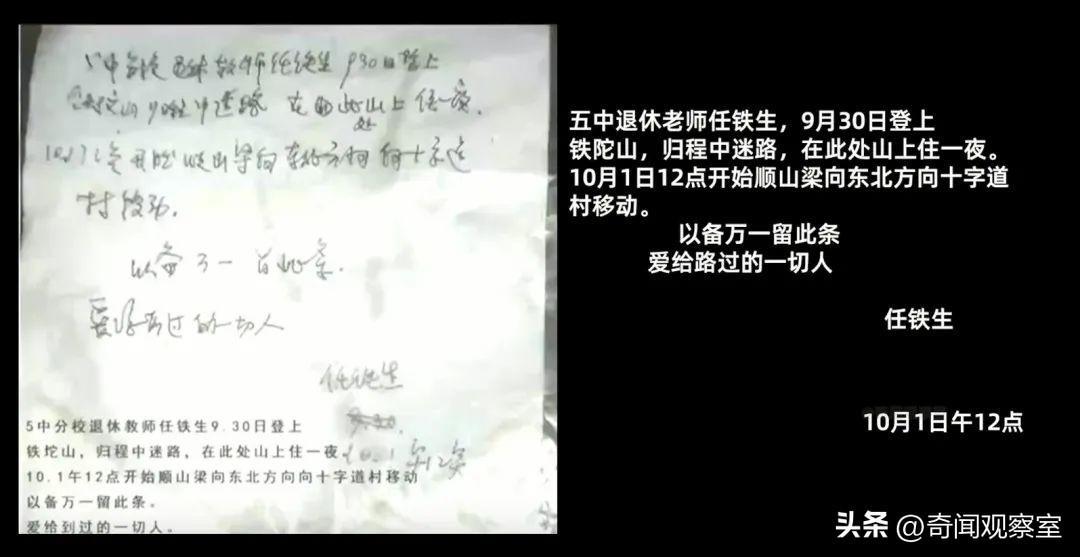 5中分校退休教师任铁生9.30日登上
铁坨山归程中迷路 在此处山上住一夜.
开始顺山梁向东北方向向十字道
村移动.
以备万一留此条.
爱给到过的一切人
任铁生
10.1 午12点
5中分校退休教师任铁生9.30日登上
铁坨山，归程中迷路，在此处山上住一夜
10.1午12点开始顺山梁向东北方向向十字道村移动
以备万一留此条。
爱给到过的一切人。
五中退休老师任铁生，9月30日登上
铁陀山，归程中迷路，在此处山上住一夜。
10月1日12点开始顺山梁向东北方向十字道
村移动。
以备万一留此条
爱给路过的一切人
任铁生
10月1日午12点
头条 @奇闻观察室